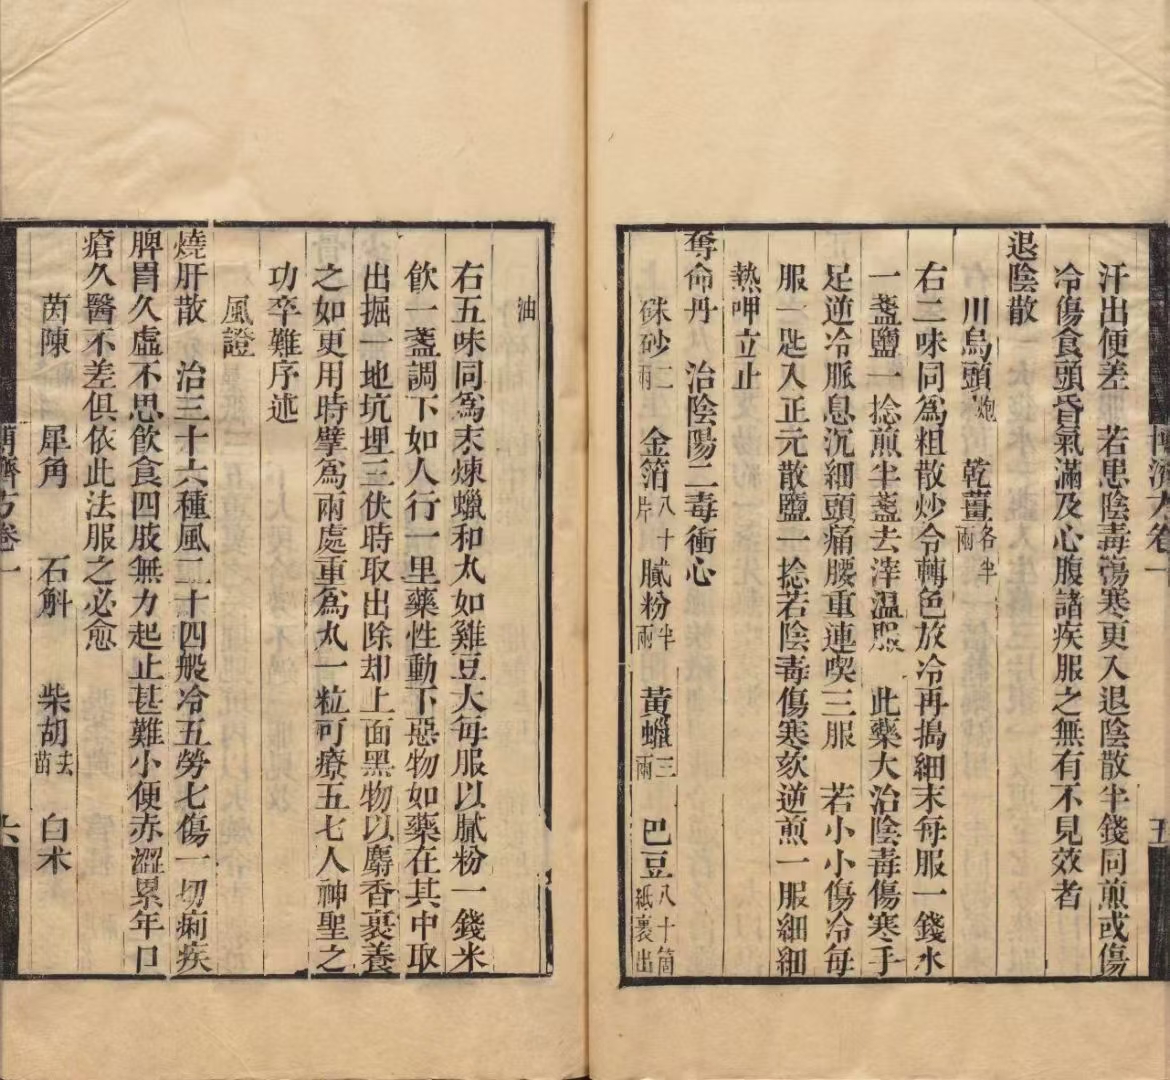 博濟方卷一
五
汗出便差　若患陰毒傷寒更入退陰散半錢同煎或傷
冷傷食頭昏氣滿及心腹諸疾服之無有不見效者
退陰散
川烏頭炮　乾薑各半兩
右二味同為粗散炒令轉色放冷再搗細末每服一錢水
一盞鹽一捻煎半盞去滓溫服　此藥大治陰毒傷寒手
足逆冷脈息沉細頭痛腰重連喫三服　若小小傷冷每
服一匙入正元散鹽一捻若陰毒傷寒欬逆煎一服細細
熱呷立止
奪命丹　治陰陽二毒衝心
硃砂二兩　金箔八十片　膩粉半兩　黃蠟三兩　巴豆八十箇紙裹出
油
右五味同為末煉蠟和丸如雞豆大每服以膩粉一錢米
飲一盞調下如人行一里藥性動下惡物如藥在其中取
出掘一地坑埋三伏時取出除却上面黑物以麝香裹養
之如更用時擘為兩處重為丸一粒可療五七人神聖之
功卒難序述
風證
燒肝散　治三十六種風二十四般冷五勞七傷一切痢疾
脾胃久虛不思飲食四肢無力起止甚難小便赤澀累年口
瘡久醫不差俱依此法服之必愈
茵陳　犀角　石斛　柴胡去苗　白朮
博濟方卷一
六